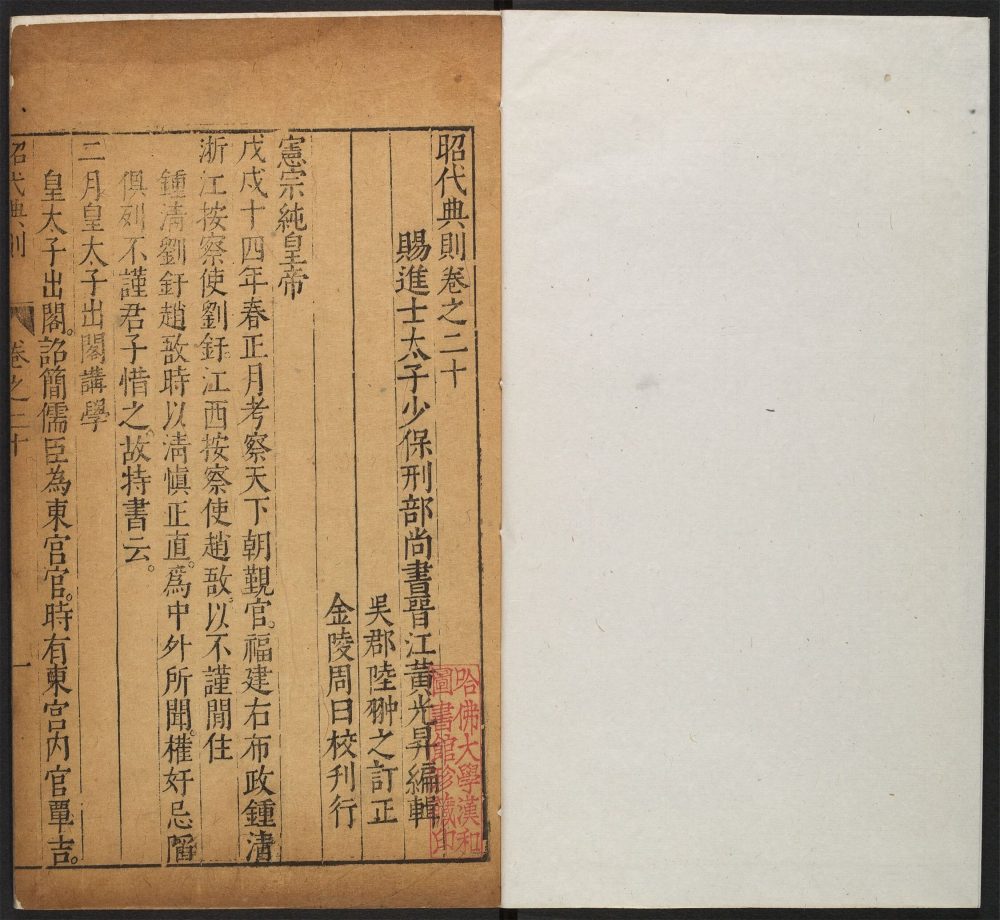 昭代典則卷之二十
賜進士太子少保刑部尚書晉江黃光昇編輯
吳郡陸翀之訂正
金陵周曰校刊行
憲宗純皇帝
戊戌十四年春正月考察天下朝覲官。福建右布政鍾清
浙江按察使劉釪。江西按察使趙敔。以不謹閒住
鍾清劉釪趙敔時以清慎正直。爲中外所聞。權奸忌
俱列不謹君子惜之。故特書云。
二月皇太子出閣講學
皇太子出閣。詔簡儒臣為東宮官。時有東宮內官覃吉。
昭代典則 卷之二十 一
哈佛大學漢和
圖書館珍藏印